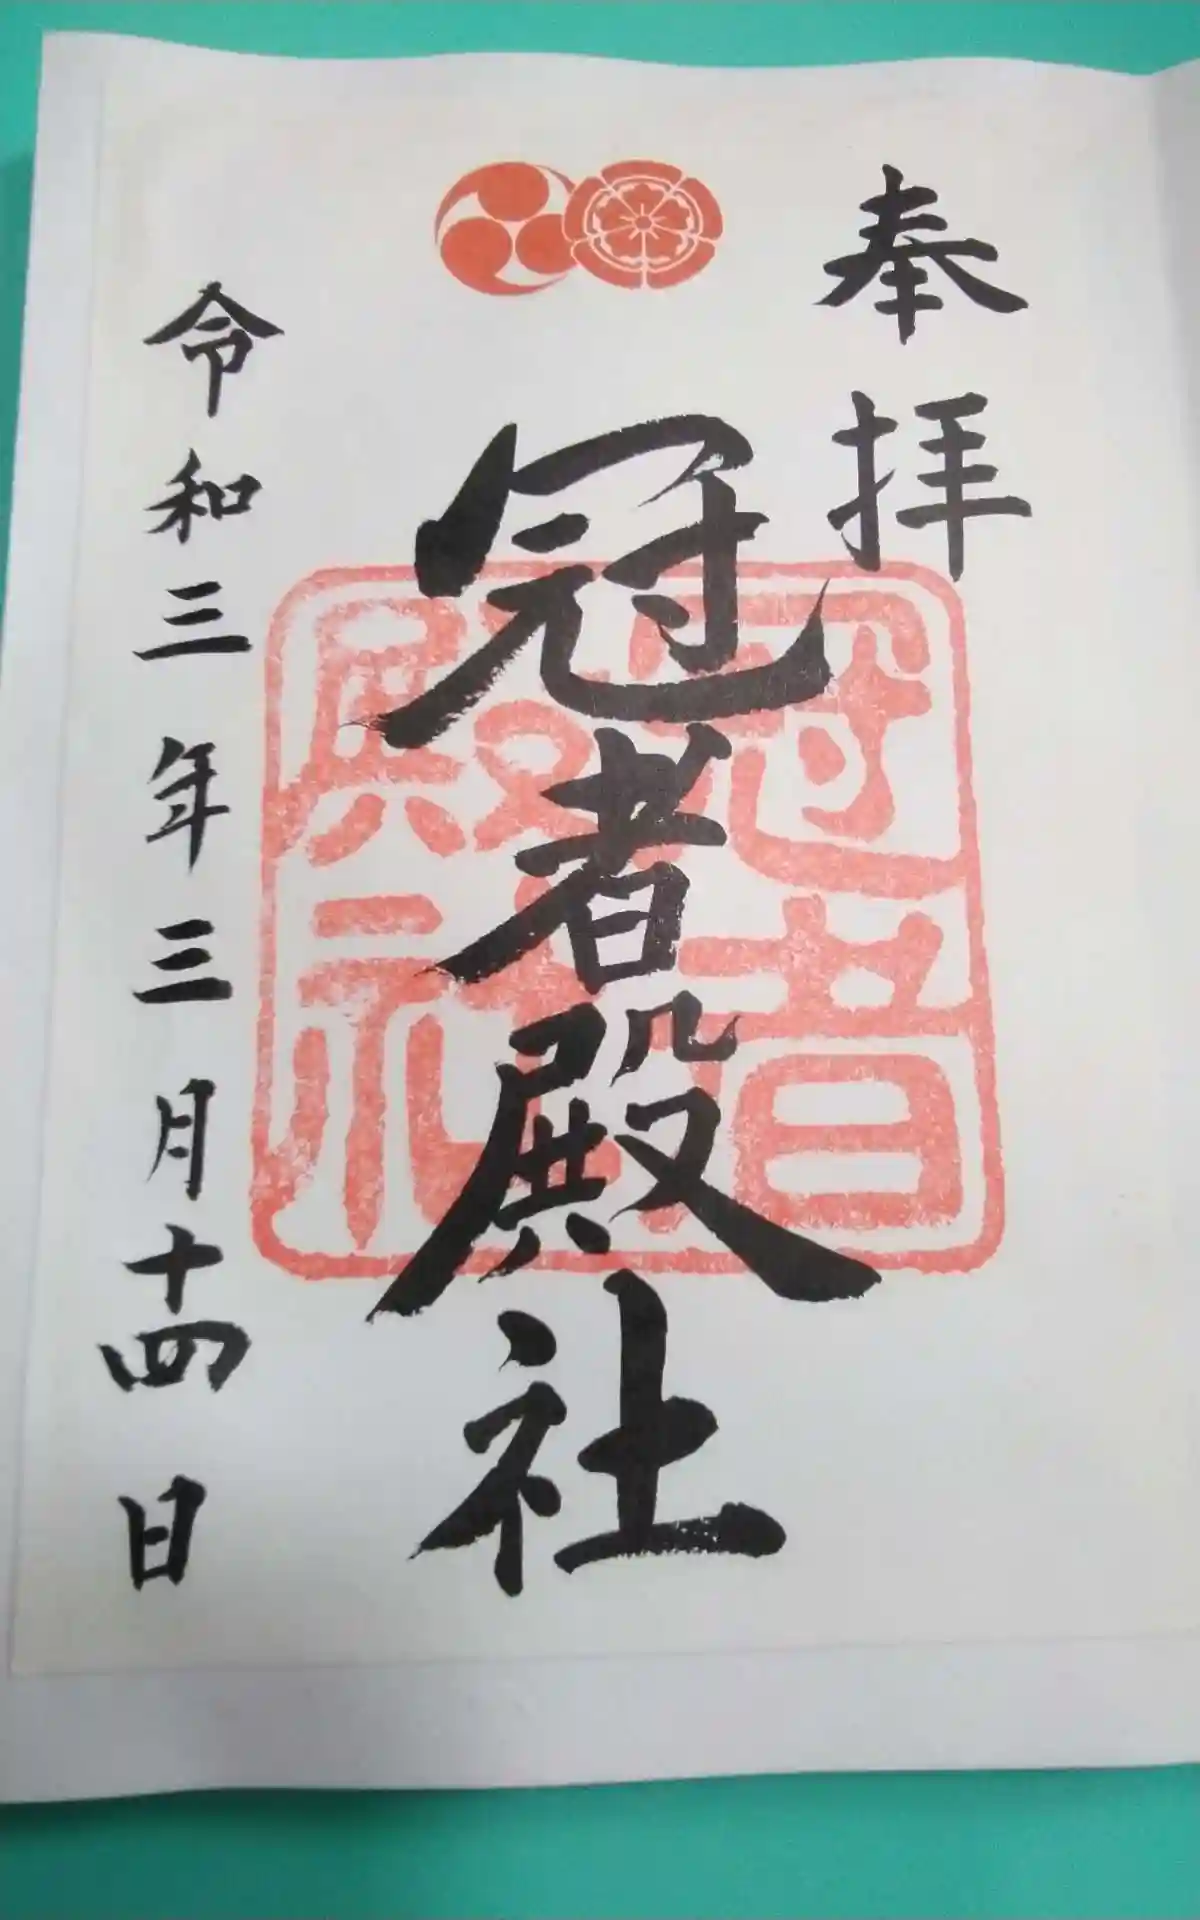 奉拝
冠者殿社
冠者
殿社
令和三年三月十四日